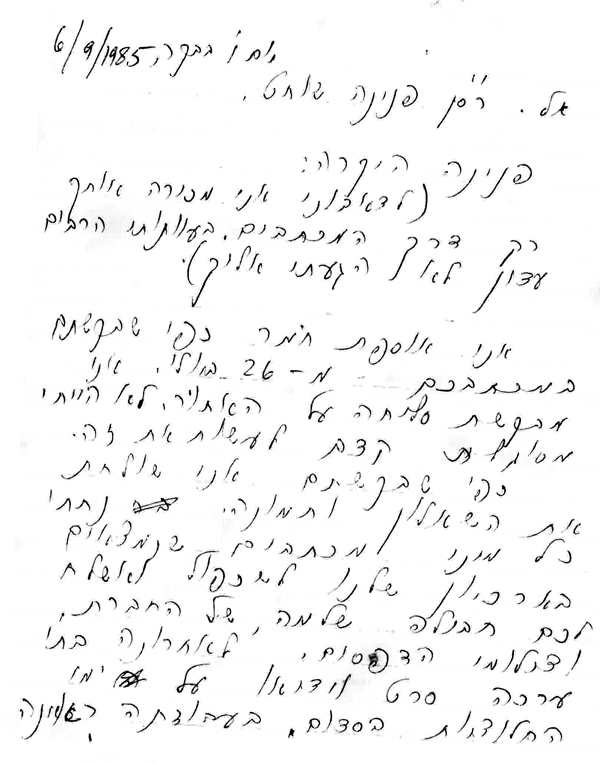 יום ו' בבקר, 6/9/1985
אל. רס"ן פנינה שוחט.
פנינה היקרה:
(לדאבוני אני מכירה אותך
רק דרך המכתבים. בעוונותי הרבים
עדין לא הגעתי אליך).
אני אוספת חומר כפי שבקשתם
במכתבכם מ-26 ביולי. אני
מבקשת סליחה על האחור. לא הייתי
מסוגלת קדם לעשות את זה.
כפי שבקשתם אני שולחת
את השאלון ותמונה. נתתי
כל מיני מכתבים שנמצאים
בארכיון שלנו לשכפול ואשלח
לכם חבילה שלמה, של החברת,
וצלומי הדפסום, לאחרונה בתי
ערכה סרט וידאו על ימי
החלוציות בסדום. בעבודתה ראשונה